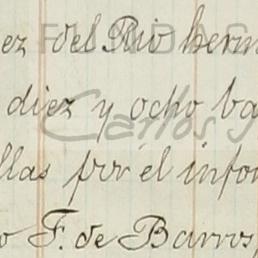 ez del Rio herm
diez y ocho ba
llas por el infor
o F. de Barros,